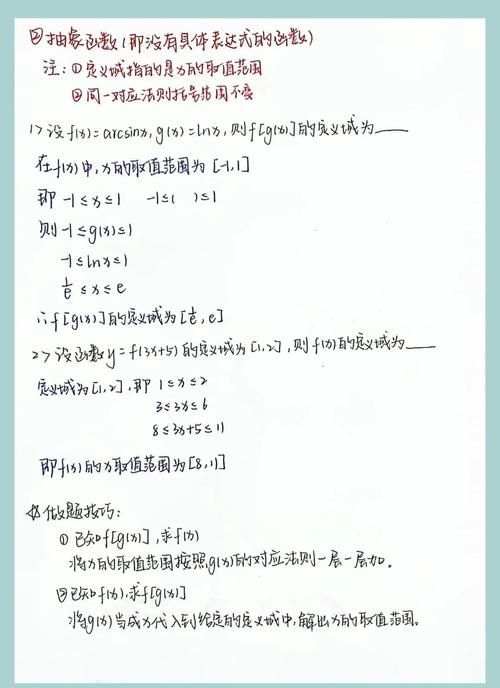 ②抽象函数(即没有具体表达式的函数)
注:①定义域指的是x的取值范围
②同一对应法则括号范围不变
1>设f(x)=arcsinx,g(x)=lnx,则f[g(x)]的定义域为____
在f(x)中,x的取值范围为[-1,1]
即 -1≤x≤1 -1≤( )≤1
则 -1≤g(x)≤1
-1≤lnx≤1
1/e≤x≤e
∴f[g(x)]的定义域为[1/e,e]
2>设函数y=f(3x+5)的定义域为[1,2],则f(x)的定义域为____
定义域为[1,2],即 1≤x≤2
3≤3x≤6
8≤3x+5≤11
即f(x)的x取值范围为[8,11]
做题技巧:
①已知f[g(x)],求f(x)
将x的取值范围按照g(x)的对应法则一层一层加.
②已知f(x),求f[g(x)]
将g(x)当成x代入到给定的定义域中,解出x的取值范围.